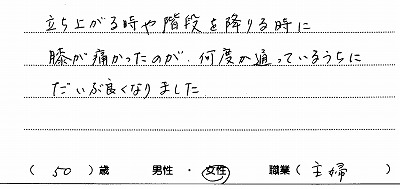 立ち上がる時や階段を降りる時に
膝が痛かったのが、何度か通っているうちに
だいぶ良くなりました
(50)歳 男性・女性 職業(主婦)